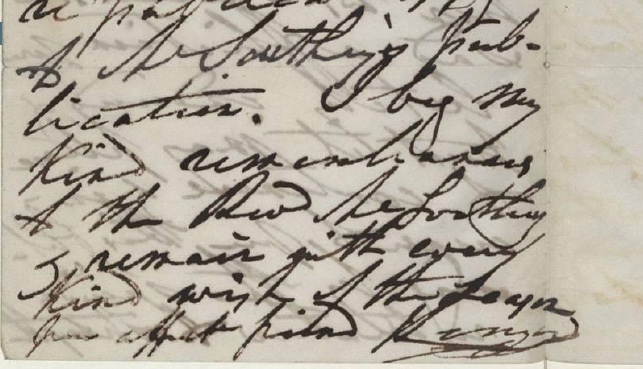 of Mr Southey's pub-
lication. I beg my
kind remembrances
to the Revd Mr Southey
& remain with every
kind wish of the season
your affect friend